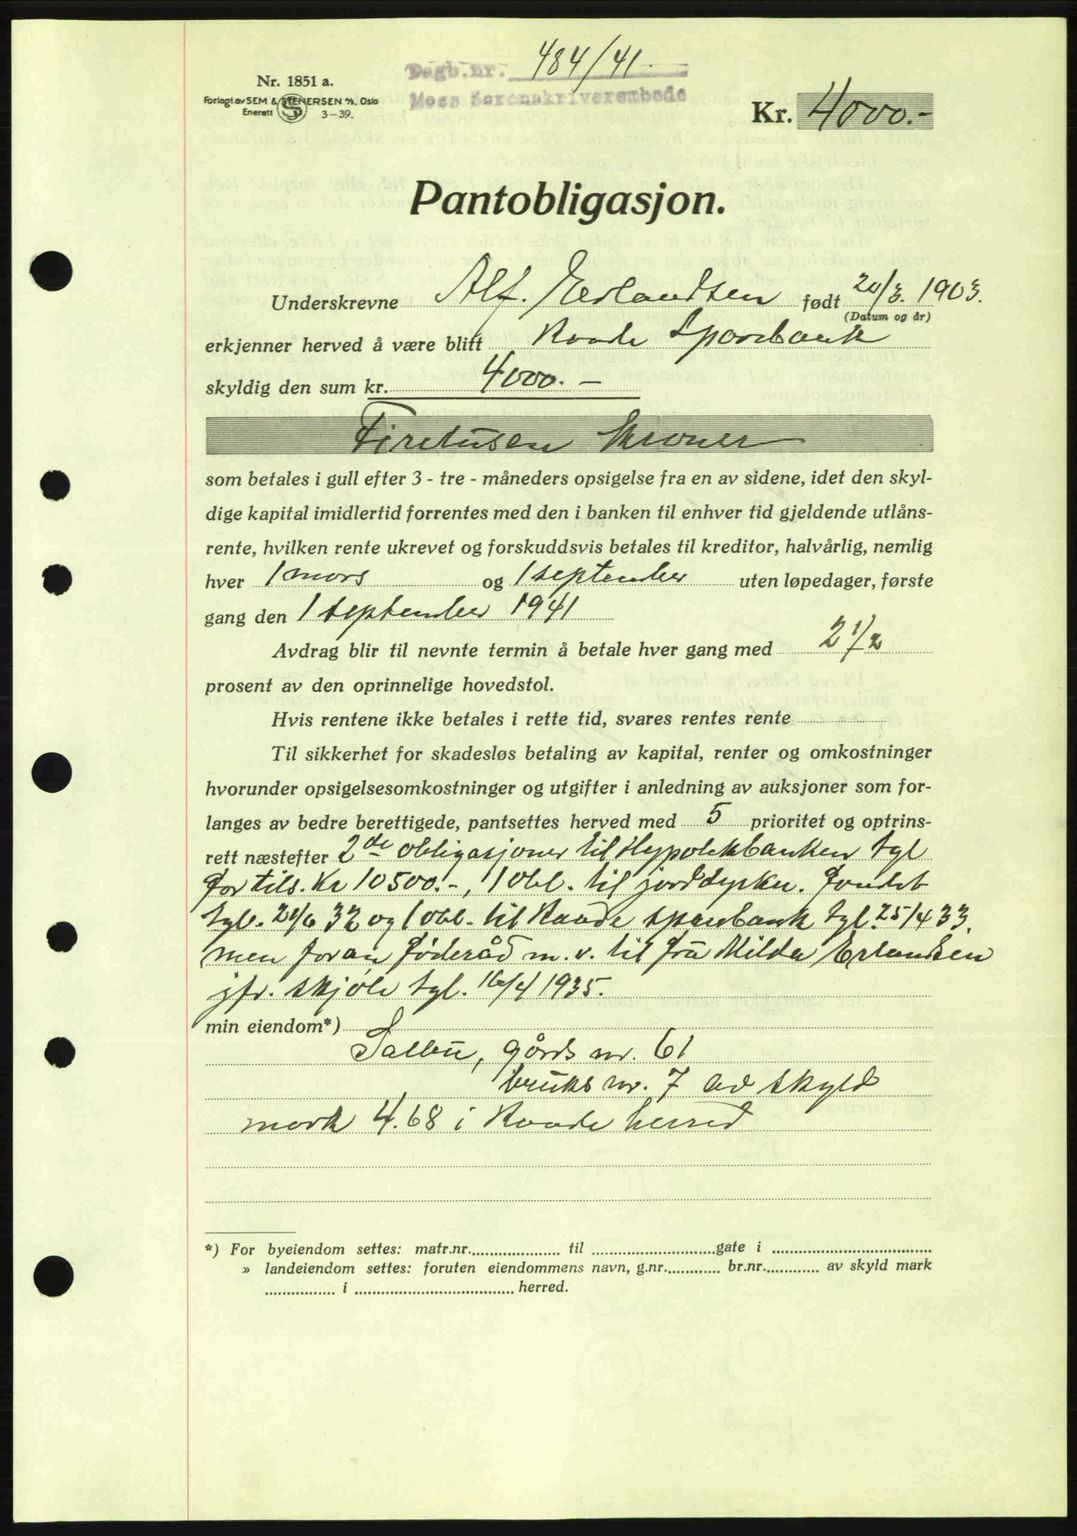 Nr. 1851 a.
Forlagt av SEM & STENERSEN A/S, Oslo
Enerett 3-39.
Dagb.nr. 484/41.
Moss Sorenskriverembede
Kr. 4000.-
Pantobligasjon.
Underskrevne Alf. Erlandsen født 20/3. 1903.
(Datum og år)
erkjenner herved å være blitt Raade Sparebank
skyldig den sum kr. 4000.-
Firetusen kroner
som betales i gull efter 3 - tre - måneders opsigelse fra en av sidene, idet den skyl-
dige kapital imidlertid forrentes med den i banken til enhver tid gjeldende utlåns-
rente, hvilken rente ukrevet og forskuddsvis betales til kreditor, halvårlig, nemlig
hver 1 mars og 1 september uten løpedager, første
gang den 1 september 1941
Avdrag blir til nevnte termin å betale hver gang med 2 1/2
prosent av den oprinnelige hovedstol.
Hvis rentene ikke betales i rette tid, svares rentes rente
Til sikkerhet for skadesløs betaling av kapital, renter og omkostninger
hvorunder opsigelsesomkostninger og utgifter i anledning av auksjoner som for-
langes av bedre berettigede, pantsettes herved med 5 prioritet og optrins-
rett næstefter 2de obligasjoner til Hypotekbanken tgl
for tils. Kr 10500.-, 1 obl. til jorddyrkn. fondet
tgl. 21/6 32 og 1 obl. til Raade sparebank tgl. 25/4 33.
men foran føderåd m.v. til fru Milda Erlandsen
jfr. skjøte tgl. 16/4 1935.
min eiendom*)
Salbu, gårds nr. 61
bruks nr. 7 av skyld
mark 4.68 i Raade herred
*) For byeiendom settes: matr.nr. til gate i
» landeiendom settes: foruten eiendommens navn, g.nr. br.nr. av skyld mark
i herred.